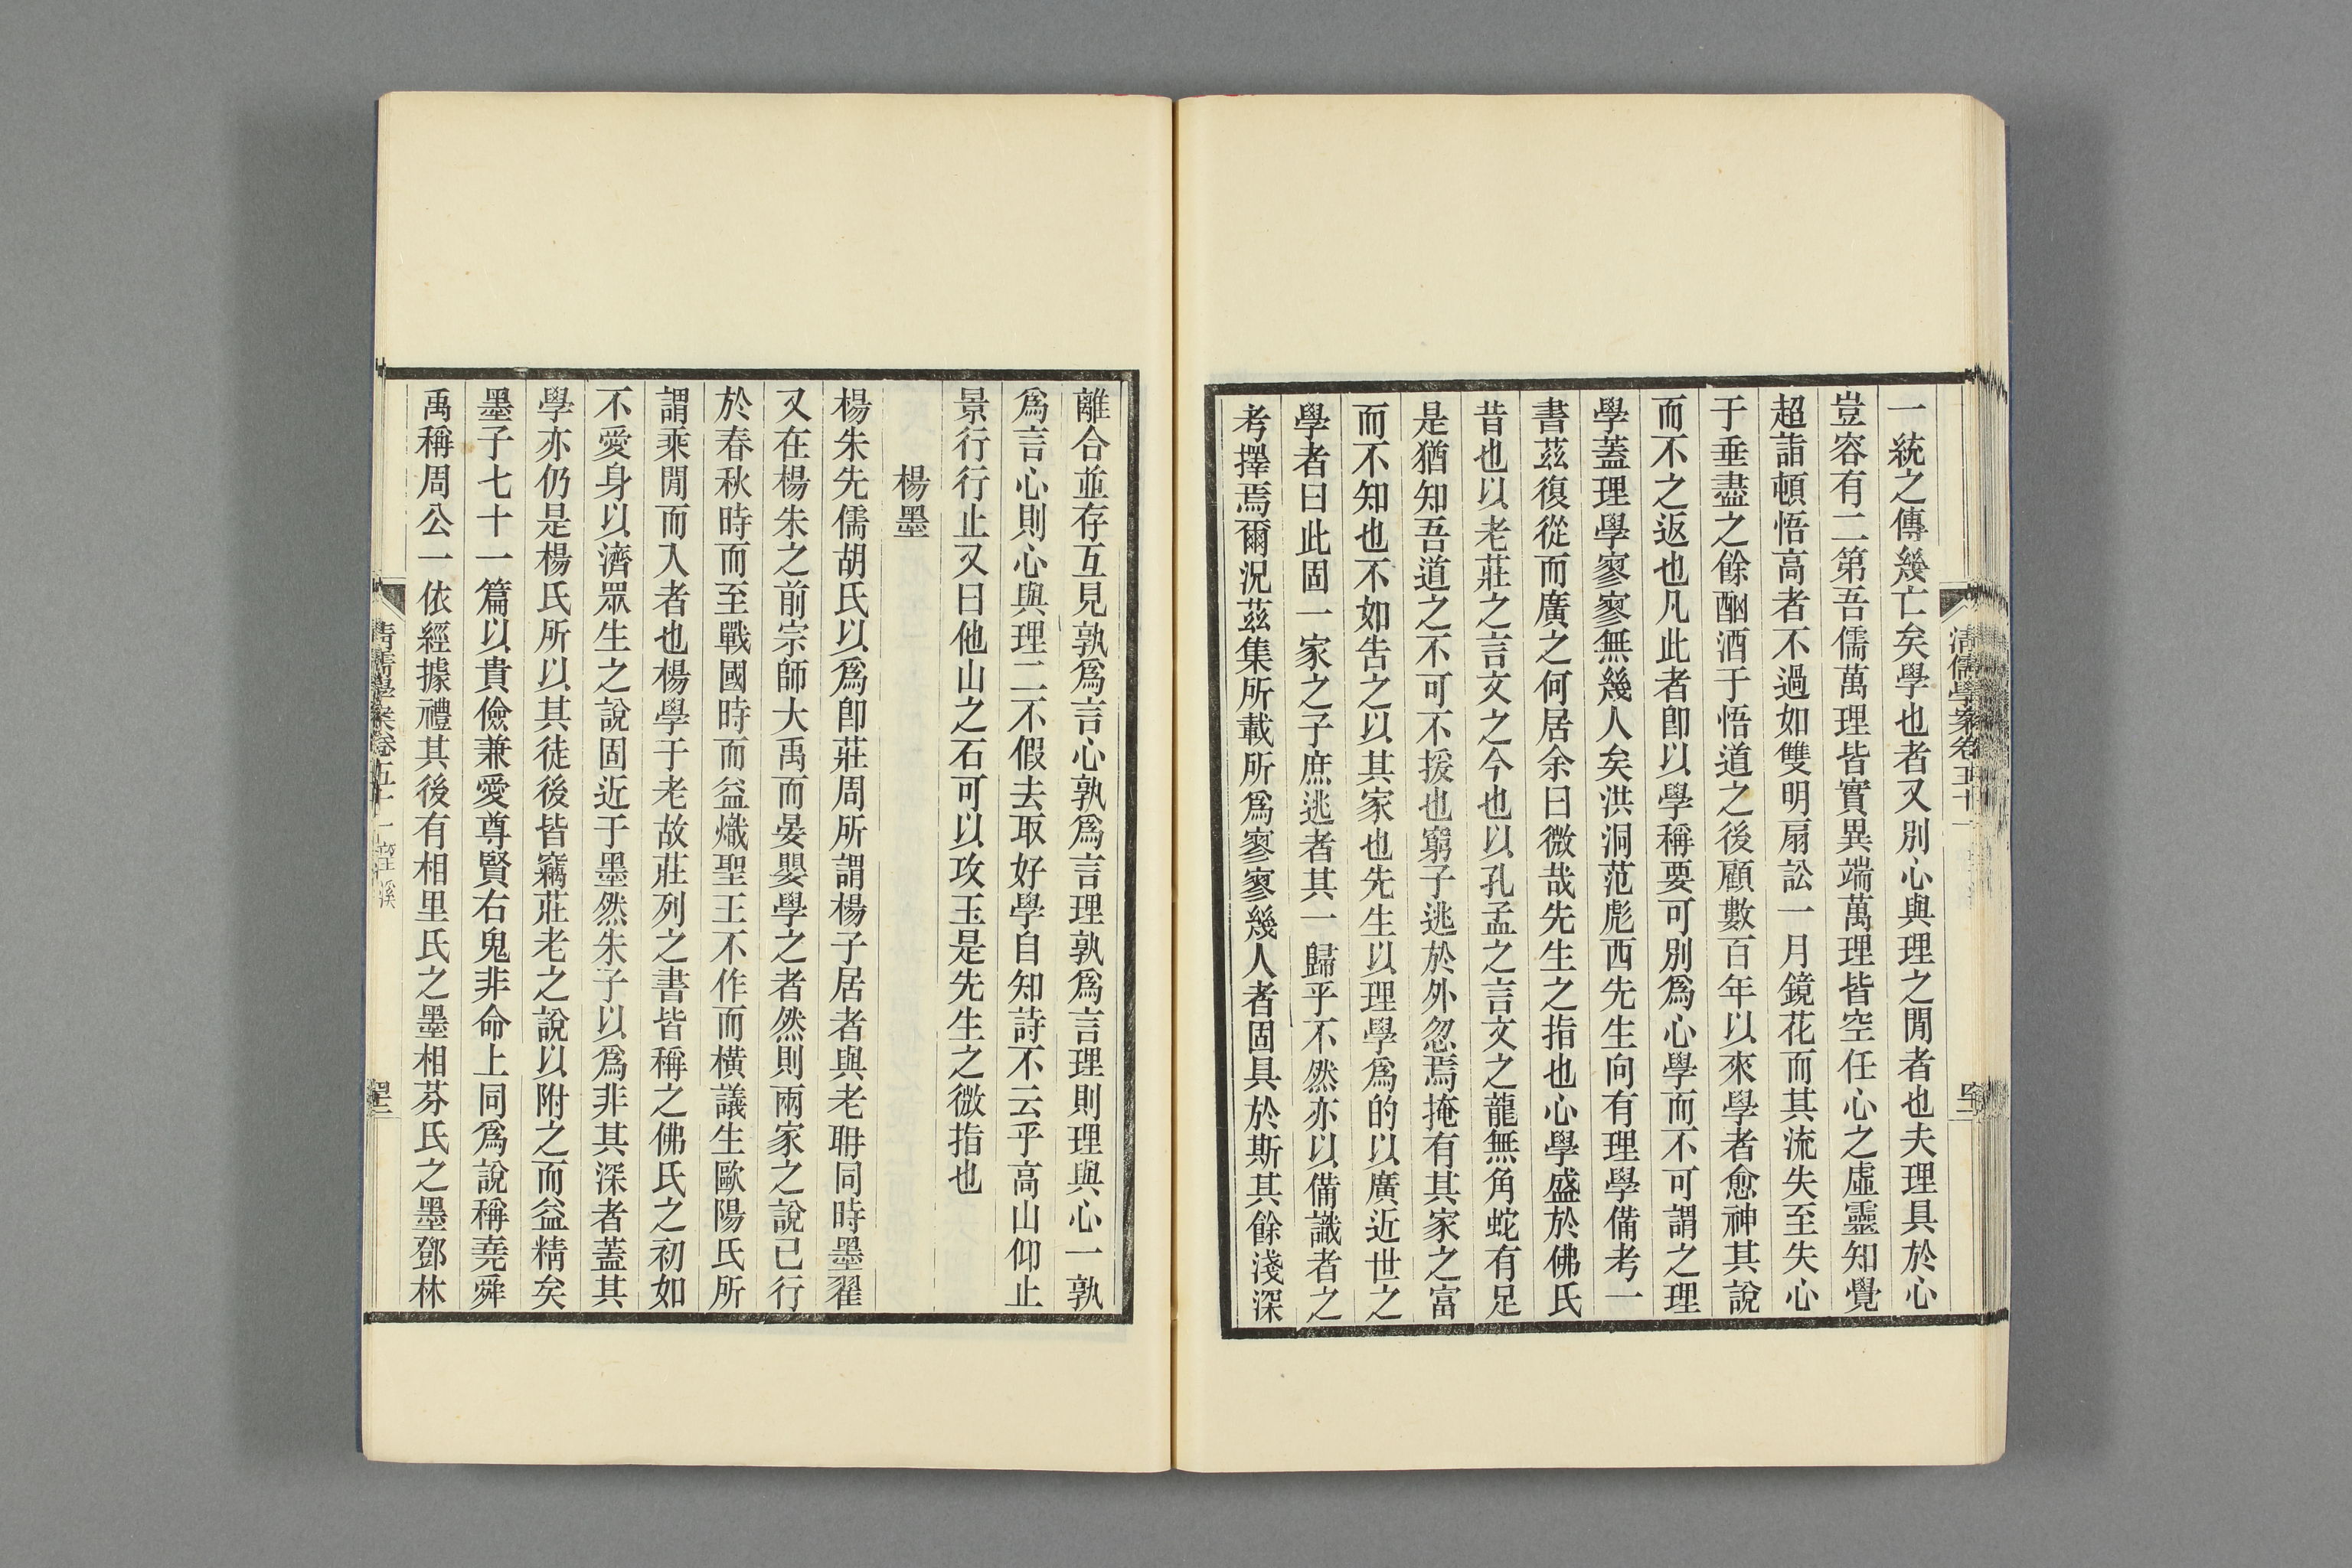 一統之傳幾亡矣學也者又別心與理之閒者也夫理具於心
豈容有二第吾儒萬理皆實異端萬理皆空任心之虛靈知覺
超詣頓悟高者不過如雙明扇訟一月鏡花而其流失至失心
于垂盡之餘酗酒于悟道之後顧數百年以來學者愈神其說
而不之返也凡此者卽以學稱要可別爲心學而不可謂之理
學蓋理學寥寥無幾人矣洪洞范彪西先生向有理學備考一
書茲復從而廣之何居余曰微哉先生之指也心學盛於佛氏
昔也以老莊之言文之今也以孔孟之言文之龍無角蛇有足
是猶知吾道之不可不援也窮子逃於外忽焉掩有其家之富
而不知也不如吿之以其家也先生以理學爲的以廣近世之
學者曰此固一家之子庶逃者其一歸乎不然亦以備識者之
考擇焉爾況茲集所載所爲寥寥幾人者固具於斯其餘淺深
清儒學案卷五十一
離合並存互見孰爲言心孰爲言理孰爲言理則理與心一孰
爲言心則心與理二不假去取好學自知詩不云乎高山仰止
景行行止又曰他山之石可以攻玉是先生之微指也
楊墨
楊朱先儒胡氏以爲卽莊周所謂楊子居者與老耼同時墨翟
又在楊朱之前宗師大禹而晏嬰學之者然則兩家之說已行
於春秋時而至戰國時而益熾聖王不作而橫議生歐陽氏所
謂乘閒而入者也楊學于老故莊列之書皆稱之佛氏之初如
不愛身以濟眾生之說固近于墨然朱子以爲非其深者蓋其
學亦仍是楊氏所以其徒後皆竊莊老之說以附之而益精矣
墨子七十一篇以貴儉兼愛尊賢右鬼非命上同爲說稱堯舜
禹稱周公一依經據禮其後有相里氏之墨相芬氏之墨鄧林
清儒學案卷五十一